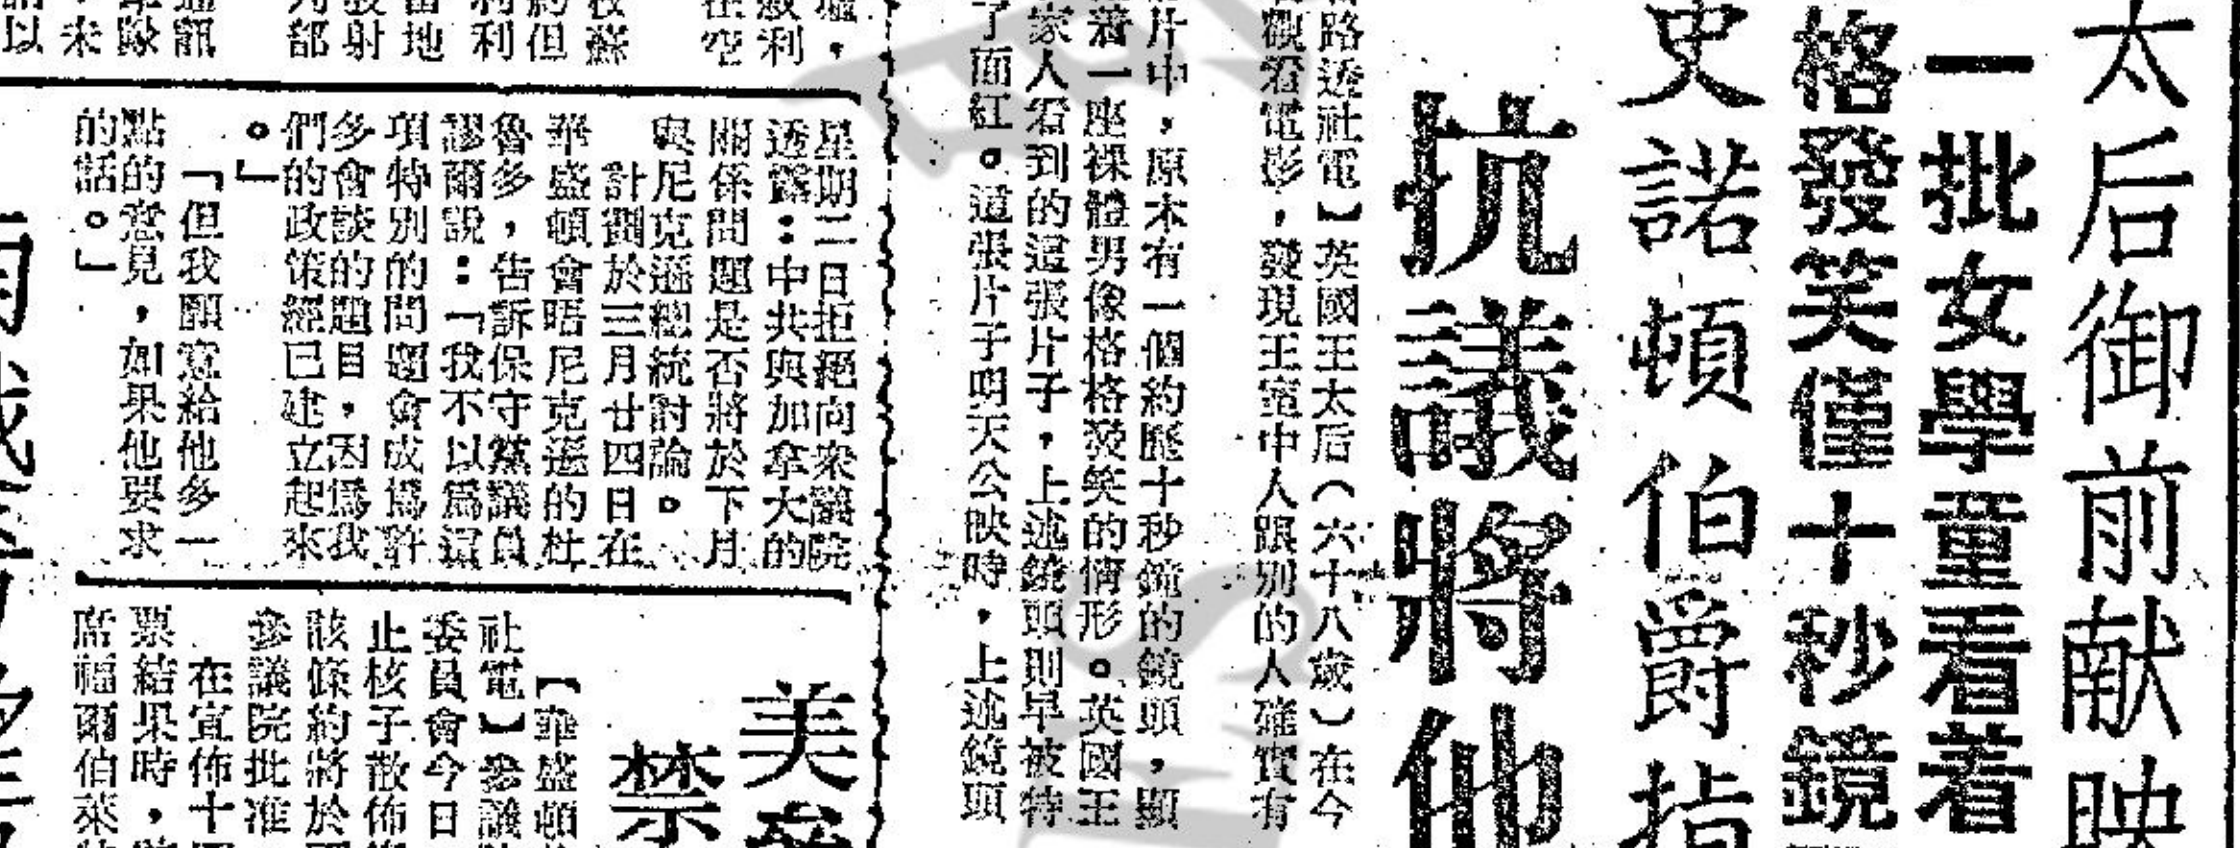 太后御前献映
一批女學童看着
格發笑僅十秒鏡
史諾頓伯爵指
抗議將他
路透社電】英國王太后（六十八歲）在今
觀看電影，發現王室中人跟別的人確實有
片中，原本有一個約歷十秒鐘的鏡頭，顯
着一座裸體男像格格發笑的情形。英國王
家人看到的這張片子，上述鏡頭則早被特
了面紅。這張片子明天公映時，上述鏡頭
墟，
敍利
在空
蘇
約但
利利
當地
發射
部
通訊
除
未
以
星期二日拒絕向衆議院
透露：中共與加拿大的
關係問題是否將於下月
與尼克遜總統討論。
計劃於三月廿四日在
華盛頓會晤尼克遜的杜
魯多，告訴保守黨議員
謬爾說：「我不以爲這
項特別的問題會成爲許
多會談的題目，因爲我
們的政策經已建立起來
。」
「但我願意給他多一
點的意見，如果他要求
的話。」
美參
禁
【華盛頓
社電】參議
委員會今日
止核子散佈
該條約將於
參議院批准
在宣佈十
票結果時，
席福爾伯萊